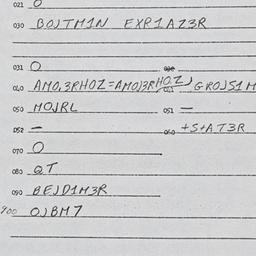 021 O
030 BOJTM1N EXP1AZ3R
031 O
040 AMO,3RHOZ=AMOJ3RHOZ) GROJS1M
050 MOJRL 051 —
052 — 060 +S+AT3R
070 O
080 QT
090 BEJD1M3R
900 OJBM7